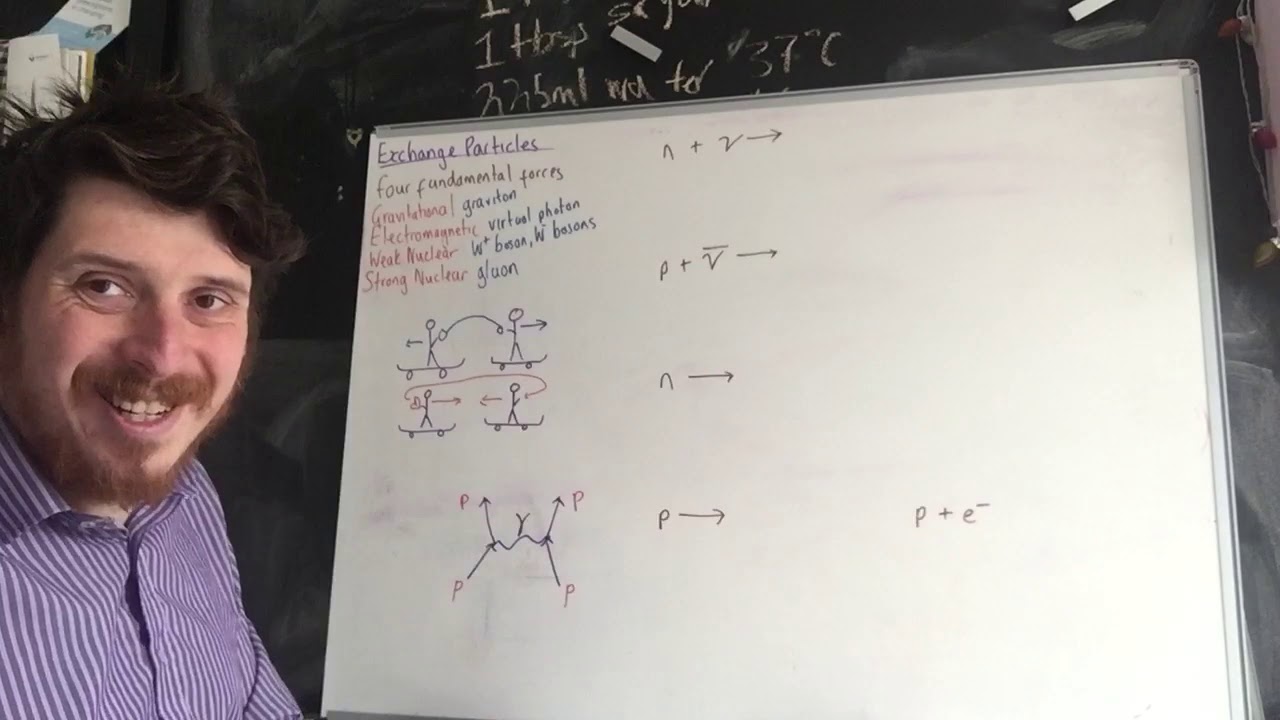 1 tbsp
37°C
Exchange Particles
four fundamental forces
Gravitational graviton
Electromagnetic virtual photon
Weak Nuclear W⁺ boson, W⁻ bosons
Strong Nuclear gluon
n + ν →
p + ν̅ →
n →
p → p + e⁻
p p
γ
p p